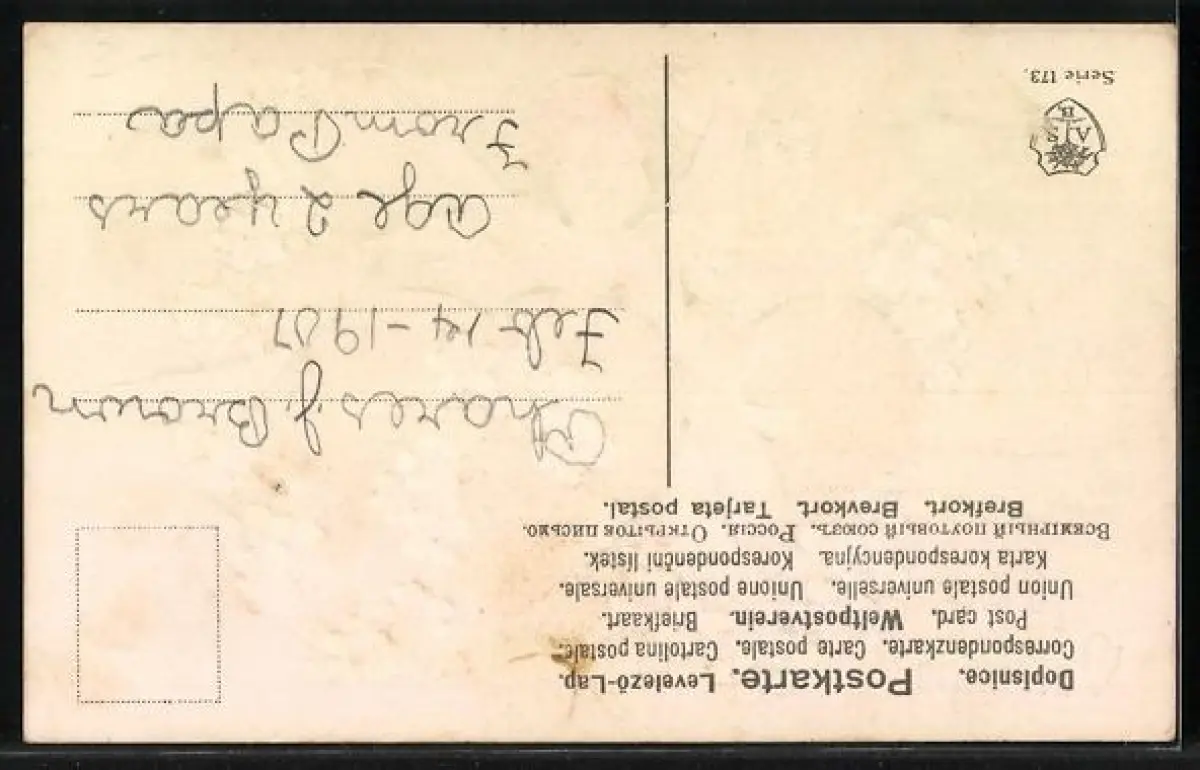 Dopisnice. Postkarte. Levelező-Lap.
Correspondenzkarte. Carte postale. Cartolina postale.
Post card. Weltpostverein. Briefkaart.
Union postale universelle. Unione postale universale.
Karta korespondencyjna. Korespondenční lístek.
Всемірный почтовый союзъ. Россія. Открытое письмо.
Brefkort. Brevkort. Tarjeta postal.
Phares J. Brown
Feb 14 - 1907
Age 2 years
From Papa
A S
B
Serie 173.